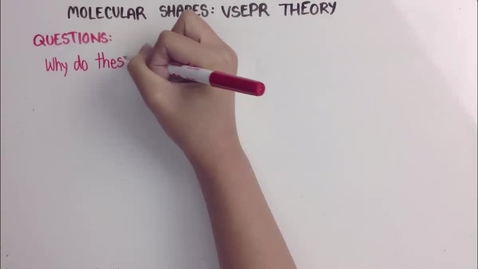 MOLECULAR SHAPES: VSEPR THEORY
QUESTIONS:
Why do thes